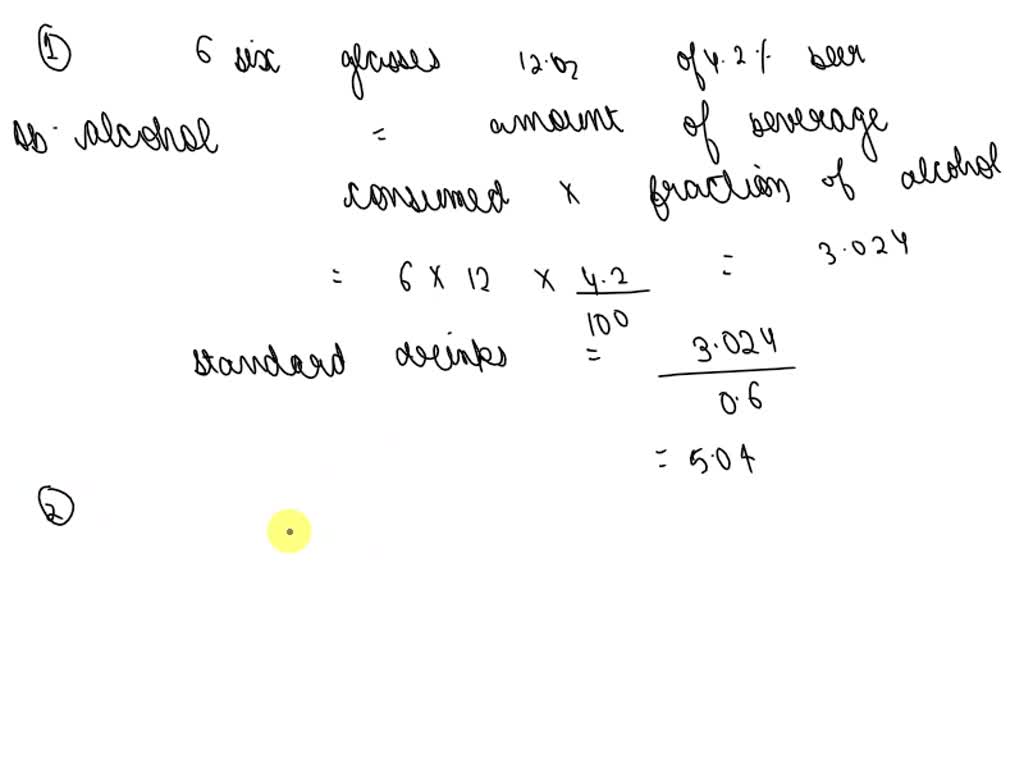 ① 6 six glasses 12.oz of 4.2% beer
Ab. alcohol = amount of beverage
consumed x fraction of alcohol
= 6 x 12 x 4.2/100 = 3.024
standard drinks = 3.024/0.6
= 5.04
②